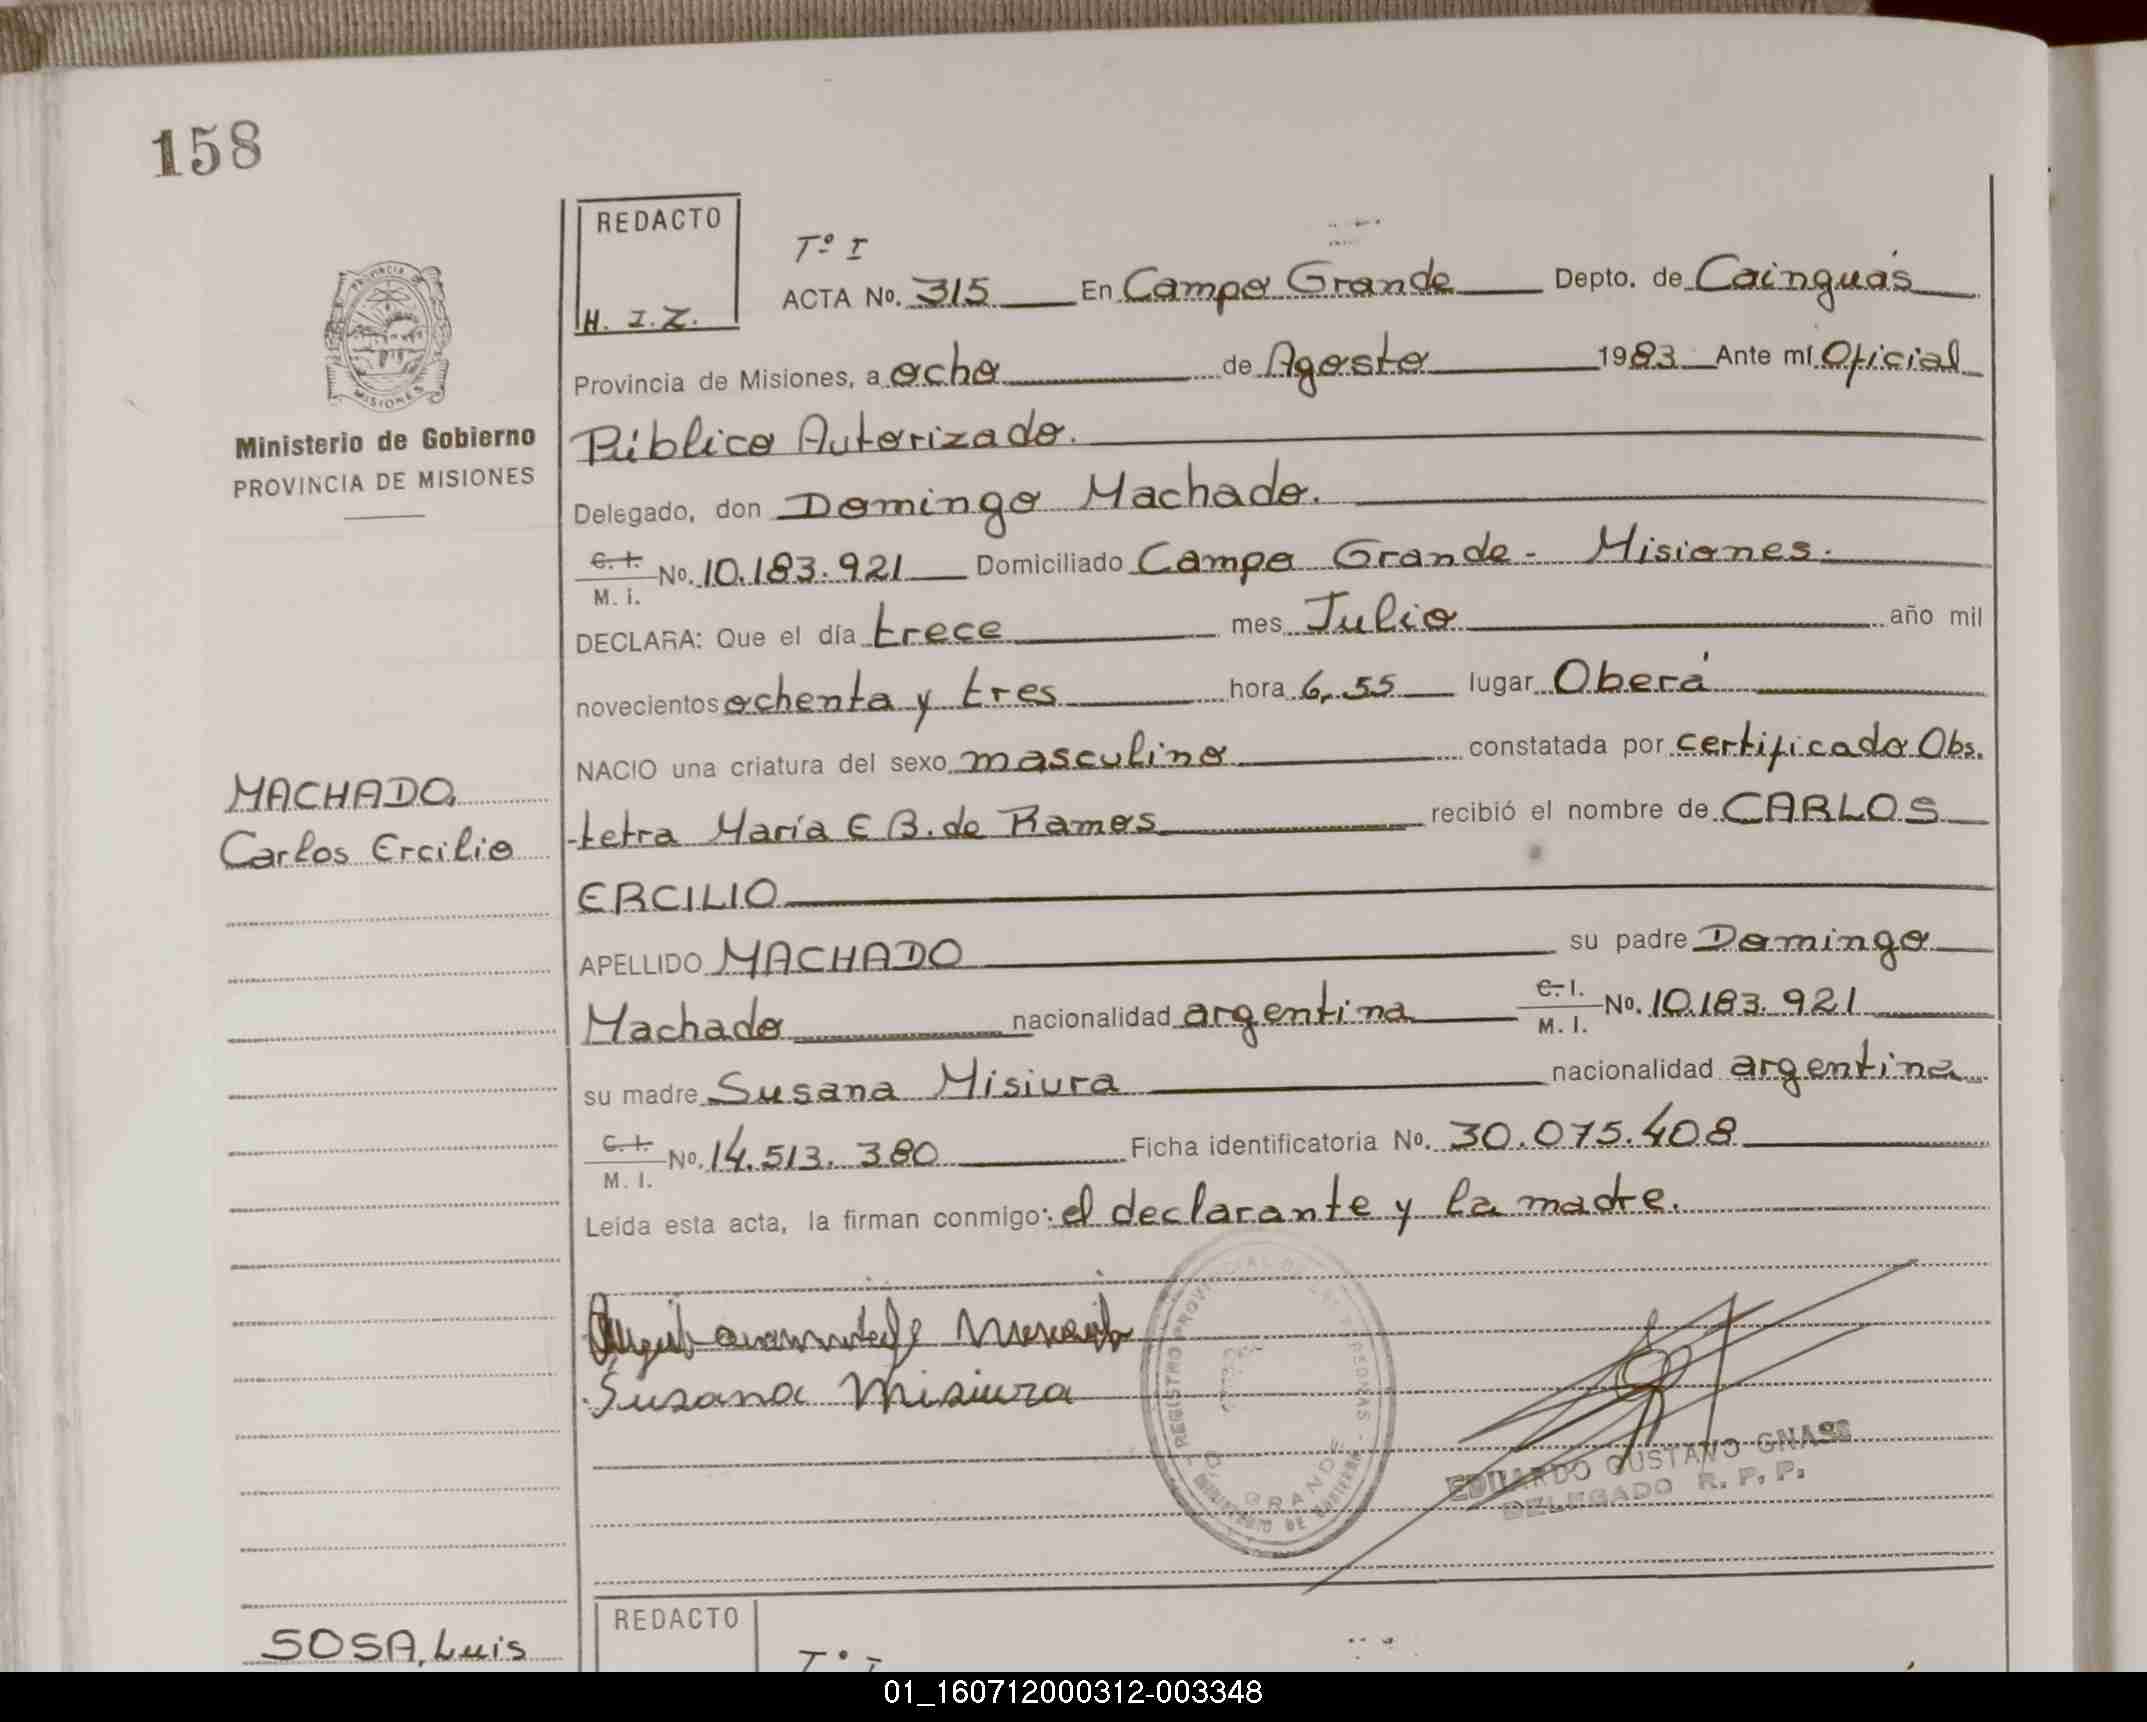 158
REDACTO
H. I. Z.
Tº I
ACTA No. 315 En Campo Grande Depto. de Cainguás
Provincia de Misiones, a ocho de Agosto 1983 Ante mí Oficial
Ministerio de Gobierno
PROVINCIA DE MISIONES
Público Autorizado.
Delegado, don Domingo Machado.
C. I. No. 10.183.921 Domiciliado Campo Grande - Misiones.
M. i.
DECLARA: Que el día trece mes Julio año mil
novecientos ochenta y tres hora 6,55 lugar Oberá
NACIO una criatura del sexo masculino constatada por certificado Obs.
MACHADO,
Carlos Ercilio
tetra María E B. de Ramos recibió el nombre de CARLOS
ERCILIO
APELLIDO MACHADO su padre Domingo
Machado nacionalidad argentina C. I. No. 10.183.921
M. I.
su madre Susana Misiura nacionalidad argentina
C. I. No. 14.513.380 Ficha identificatoria No. 30.075.408
M. I.
Leída esta acta, la firman conmigo: el declarante y la madre.
Susana Misiura
REGISTRO PROVINCIAL DE LAS PERSONAS
GRANDE
MINISTERIO DE GOBIERNO
EDUARDO GUSTAVO GNASS
DELEGADO R. P. P.
REDACTO
SOSA, Luis
Tº I
01_160712000312-003348